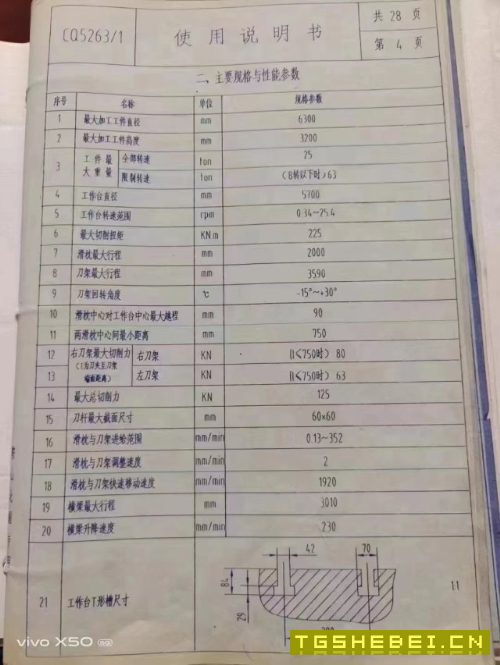 CQ5263/1 使用说明书 共28页
第4页
二、主要规格与性能参数
序号 名称 单位 规格参数
1 最大加工工件直径 mm 6300
2 最大加工工件高度 mm 3200
3 工件最大重量 全部转速 ton 25
限制转速 ton (8转以下时) 63
4 工作台直径 mm 5700
5 工作台转速范围 rpm 0.34~25.4
6 最大切削扭矩 KN.m 225
7 滑枕最大行程 mm 2000
8 刀架最大行程 mm 3590
9 刀架回转角度 ℃ -15°~+30°
10 滑枕中心对工作台中心最大越程 mm 90
11 两滑枕中心间最小距离 mm 750
12 右刀架最大切削力 右刀架 KN (l≤750时) 80
13 端面距离) 左刀架 KN (l≤750时) 63
14 最大总切削力 KN 125
15 刀杆最大截面尺寸 mm 60×60
16 滑枕与刀架进给范围 mm/min 0.13~352
17 滑枕与刀架调整速度 mm/min 2
18 滑枕与刀架快速移动速度 mm/min 1920
19 横梁最大行程 mm 3010
20 横梁升降速度 mm/min 230
21 工作台T形槽尺寸
42 70
84
29
1:1
vivo X50 5G
TGSHEBEI.CN